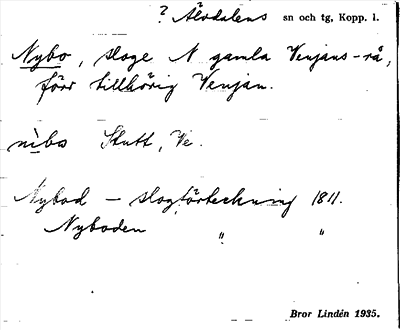 ? Älvdalens sn och tg, Kopp. l.
Nybo, sloge N gamla Venjans-rå,
förr tillhörig Venjan.
nìbo Stutt, Ve.
Nybod – slogförteckning 1811.
Nyboden " "
Bror Lindén 1935.